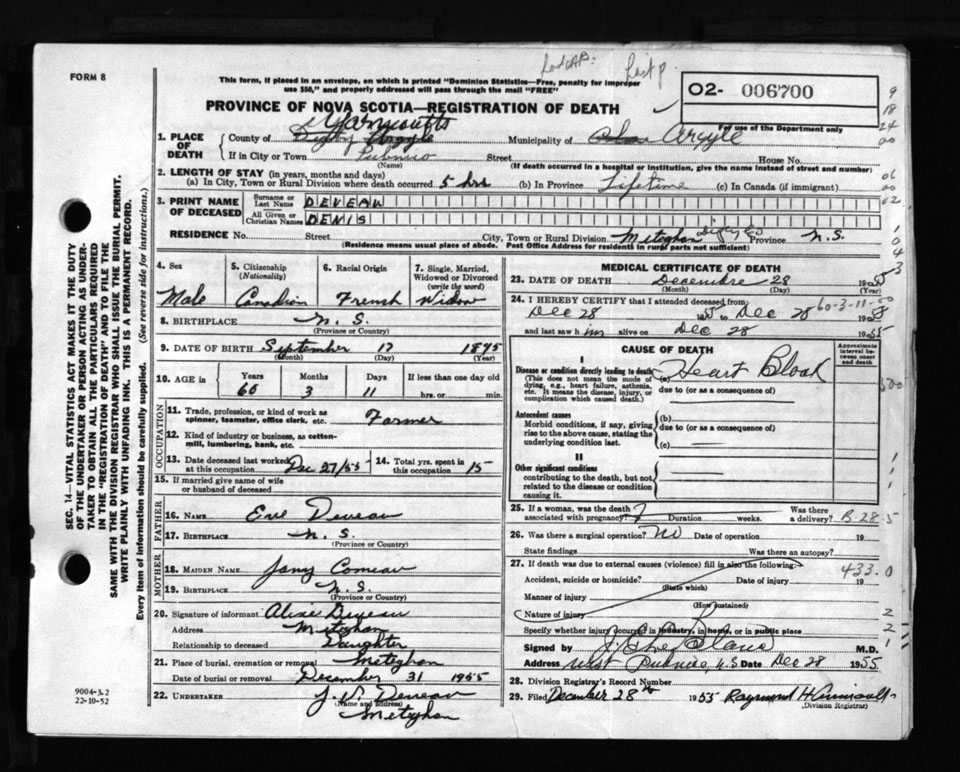 FORM 8
This form, if placed in an envelope, on which is printed "Dominion Statistics—Free, penalty for improper
use $50," and properly addressed will pass through the mail "FREE"
PROVINCE OF NOVA SCOTIA—REGISTRATION OF DEATH
O2- 006700
For use of the Department only
Yarmouth
1. PLACE OF DEATH County of Digby Argyle Municipality of Argyle
If in City or Town Pubnico Street House No.
(Name) (If death occurred in a hospital or institution, give the name instead of street and number)
2. LENGTH OF STAY (in years, months and days)
(a) In City, Town or Rural Division where death occurred 5 hrs (b) In Province Lifetime (c) In Canada (if immigrant)
3. PRINT NAME OF DECEASED Surname or Last Name DEVEAU
All Given or Christian Names DENIS
RESIDENCE No. Street City, Town or Rural Division Meteghan Digby Co Province N.S.
(Residence means usual place of abode. Post Office Address for residents in rural parts not sufficient)
4. Sex Male
5. Citizenship (Nationality) Canadien
6. Racial Origin French
7. Single, Married, Widowed or Divorced (write the word) Widow
8. BIRTHPLACE N.S.
(Province or Country)
9. DATE OF BIRTH September 17 1895
(Month) (Day) (Year)
10. AGE in Years 60 Months 3 Days 11 If less than one day old
hrs. or min.
OCCUPATION
11. Trade, profession, or kind of work as spinner, teamster, office clerk, etc. Farmer
12. Kind of industry or business, as cotton-mill, lumbering, bank, etc.
13. Date deceased last worked at this occupation Dec 27/55
14. Total yrs. spent in this occupation 15
15. If married give name of wife or husband of deceased
FATHER
16. NAME Eve Deveau
17. BIRTHPLACE N.S.
(Province or Country)
MOTHER
18. MAIDEN NAME Jany Comeau
19. BIRTHPLACE N.S.
(Province or Country)
20. Signature of informant Deveau
Address Meteghan
Relationship to deceased Daughter
21. Place of burial, cremation or removal Meteghan
Date of burial or removal December 31 1955
22. UNDERTAKER J. V. Deveau
(Name and address)
Meteghan
MEDICAL CERTIFICATE OF DEATH
23. DATE OF DEATH Decembre 28 1955
(Month) (Day) (Year)
60-3-11-00
24. I HEREBY CERTIFY that I attended deceased from:
Dec 28 1955 to Dec 28 1955
and last saw him alive on Dec 28 1955
CAUSE OF DEATH
Approximate interval between onset and death
I
Disease or condition directly leading to death
(This does not mean the mode of dying, e.g., heart failure, asthenia, etc. It means the disease, injury, or complication which caused death.)
(a) Heart Block
due to (or as a consequence of)
Antecedent causes
Morbid conditions, if any, giving rise to the above cause, stating the underlying condition last.
(b)
due to (or as a consequence of)
(c)
II
Other significant conditions
contributing to the death, but not related to the disease or condition causing it.
25. If a woman, was the death associated with pregnancy? Duration weeks. Was there a delivery? B-28-5
26. Was there a surgical operation? No Date of operation 19
State findings Was there an autopsy?
27. If death was due to external causes (violence) fill in also the following: 433.0
Accident, suicide or homicide? Date of injury 19
(State which)
Manner of injury
(How sustained)
Nature of injury
Specify whether injury occurred in industry, in home, or in public place
Signed by M.D.
Address West Pubnico, N.S Date Dec 28 1955
28. Division Registrar's Record Number
29. Filed December 28th 1955 Raymond H.
(Division Registrar)
9004-3.2
22-10-52
SEC. 14—VITAL STATISTICS ACT MAKES IT THE DUTY
OF THE UNDERTAKER OR PERSON ACTING AS UNDER-
TAKER TO OBTAIN ALL THE PARTICULARS REQUIRED
IN THE "REGISTRATION OF DEATH" AND TO FILE THE
SAME WITH THE DIVISION REGISTRAR WHO SHALL ISSUE THE BURIAL PERMIT.
WRITE PLAINLY WITH UNFADING INK. THIS IS A PERMANENT RECORD.
Every item of information should be carefully supplied. (See reverse side for instructions.)